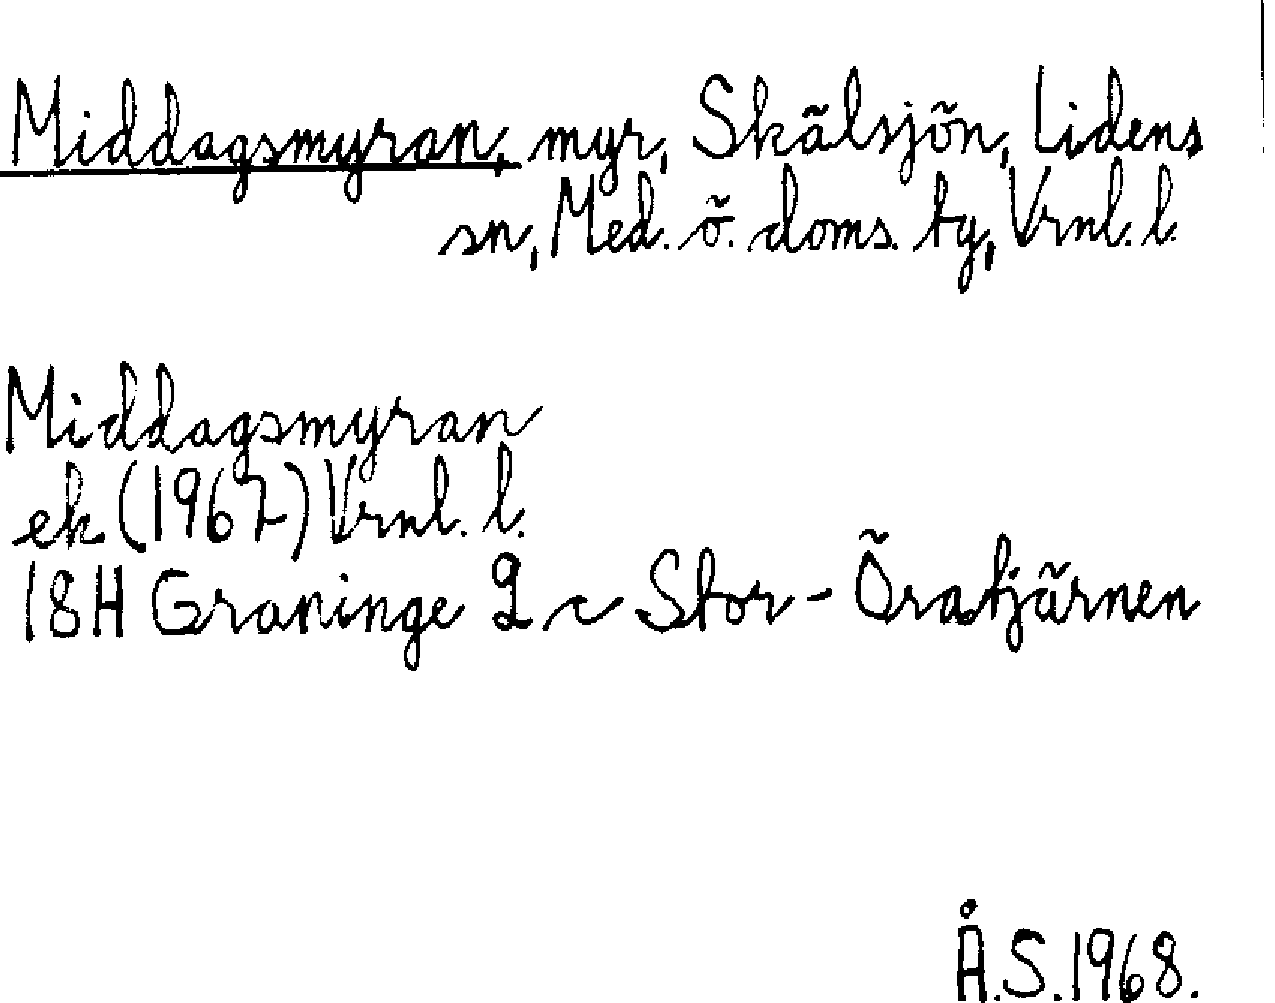 Middagsmyran, myr, Skälsjön, Lidens
sn, Med. ö. doms. tg, Vrnl. l.
Middagsmyran
ek (1967) Vrnl. l.
18H Graninge 2 c Stor-Öratjärnen
Å.S. 1968.